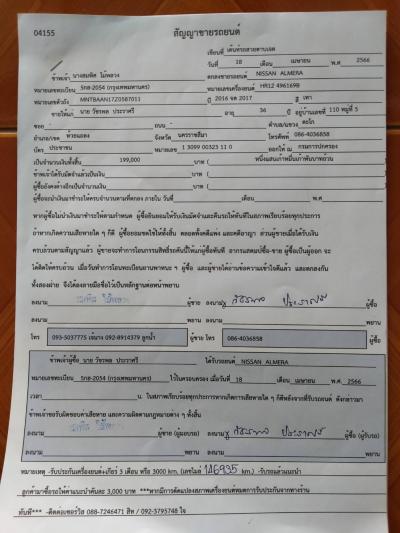 04155
สัญญาขายรถยนต์
เขียนที่ เต้นท์รถสวยตานเจต
วันที่ 18 เดือน เมษายน พ.ศ 2566
ข้าพเจ้า นางสมพิศ ไม้พลวง ตกลงขายรถยนต์ NISSAN ALMERA
หมายเลขทะเบียน 5กธ-2054 (กรุงเทพมหานคร) หมายเลขเครื่องยนต์ HR12 496169B
หมายเลขตัวถัง MNTBAAN17Z0587011 ปี 2016 จด 2017 สี เทา
ขายให้แก่ นาย วัชรพล ประวาศรี อายุ 36 ปี อยู่บ้านเลขที่ 110 หมู่ที่ 5
ซอย - ถนน - ตำบล/แขวง ตะโก
อำเภอ/เขต ห้วยแถลง จังหวัด นครราชสีมา โทรศัพท์ 086-4036858
บัตร ประชาชน หมายเลข 1 3099 00323 11 0 ออกให้ ณ กรมการปกครอง
เป็นจำนวนเงินทั้งสิ้น 199,000 บาท ( หนึ่งแสนเก้าหมื่นเก้าพันบาทถ้วน
ข้าพเจ้าได้รับมัดจำแล้วเป็นเงิน บาท (
ผู้ซื้อยังคงค้างอีกเป็นจำนวนเงิน บาท (
ผู้ซื้อจะนำเงินมาชำระให้ครบจำนวนตามที่ตกลง ภายใน วันที่ เดือน พ.ศ.
หากผู้ซื้อไม่นำเงินมาชำระให้ตามกำหนด ผู้ซื้อยินยอมให้ริบเงินมัดจำและคืนรถให้ทันทีในสภาพเรียบร้อยทุกประการ
ถ้าหากเกิดความเสียหายใด ๆ ก็ดี ผู้ซื้อยอมชดใช้ให้ทั้งสิ้น ตลอดทั้งคดีแพ่ง และคดีอาญา ส่วนผู้ขายเมื่อได้รับเงิน
ครบถ้วนตามสัญญาแล้ว ผู้ขายจะทำการโอนกรรมสิทธิ์รถคันนี้ให้แก่ผู้ซื้อทันที อากรแสตมป์ซื้อ-ขาย ผู้ซื้อเป็นผู้ออก จะ
ได้คิดให้ครบถ้วน เมื่อวันทำการโอนทะเบียนยานพาหนะ ๆ ผู้ซื้อ และผู้ขายได้อ่านข้อความเข้าใจดีแล้ว และตกลงกัน
ทั้งสองฝ่าย จึงได้ลงลายมือชื่อไว้เป็นหลักฐานต่อหน้าพยาน
ลงนาม สมพิศ ไม้พลวง ผู้ขาย ลงนาม วัชรพล ประวาศรี ผู้ซื้อ
ลงนาม พยาน ลงนาม พยาน
โทร 093-5037775 เจ๊นาง 092-8914379 ลูกน้ำ ผู้ขาย โทร 086-4036858 ผู้ซื้อ
ข้าพเจ้าผู้ซื้อ นาย วัชรพล ประวาศรี ได้รับรถยนต์ NISSAN ALMERA
หมายเลขทะเบียน 5กธ-2054 (กรุงเทพมหานคร) ไว้ในครอบครอง เมื่อวันที่ 18 เดือน เมษายน พ.ศ. 2566
เวลา น. ในสภาพเรียบร้อยทุกประการหากเกิดการเสียหายใด ๆ ก็ดีหลังจากที่รับรถยนต์ ดังกล่าวมา
ข้าพเจ้าขอรับผิดชอบค่าเสียหาย และความผิดตามกฎหมายต่าง ๆ ทั้งสิ้น
ลงนาม สมพิศ ไม้พลวง ผู้ขาย (ผู้มอบรถ) ลงนาม วัชรพล ประวาศรี ผู้ซื้อ (ผู้รับรถ)
ลงนาม พยาน ลงนาม พยาน
หมายเหตุ -รับประกันเครื่องยนต์+เกียร์ 3 เดือน หรือ 3000 km. (เลขไมล์ 146935 km.) -รับรถแล้วแนะนำ
ลูกค้ามาซื้อรถให้ค่าแนะนำคันละ 3,000 บาท ***หากมีการดัดแปลงสภาพเครื่องยนต์หมดการรับประกันจากทางร้าน
ทันที*** -ติดต่อเซอร์วิส 088-7246471 สิท / 092-3795748 ใจ